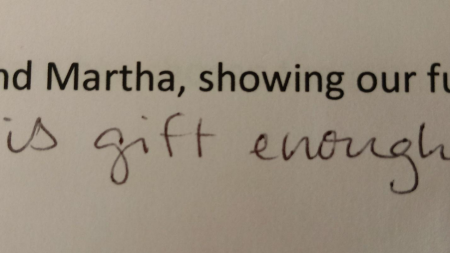 nd Martha, showing our fu
is gift enough